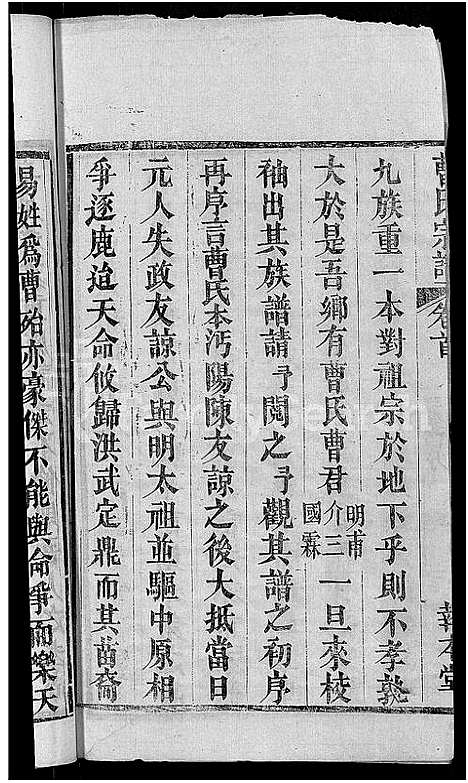 曹氏宗譜 卷首
九族重一本對祖宗於地下乎則不孝孰
大於是吾鄉有曹氏曹君明甫介三國霖一旦來校
袖出其族譜請予閱之予觀其譜之初序
再序言曹氏本沔陽陳友諒之後大抵當日
元人失政友諒公與明太祖並驅中原相
爭逐鹿迨天命攸歸洪武定鼎而其苗裔
易姓爲曹殆亦豪傑不能與命爭而樂天